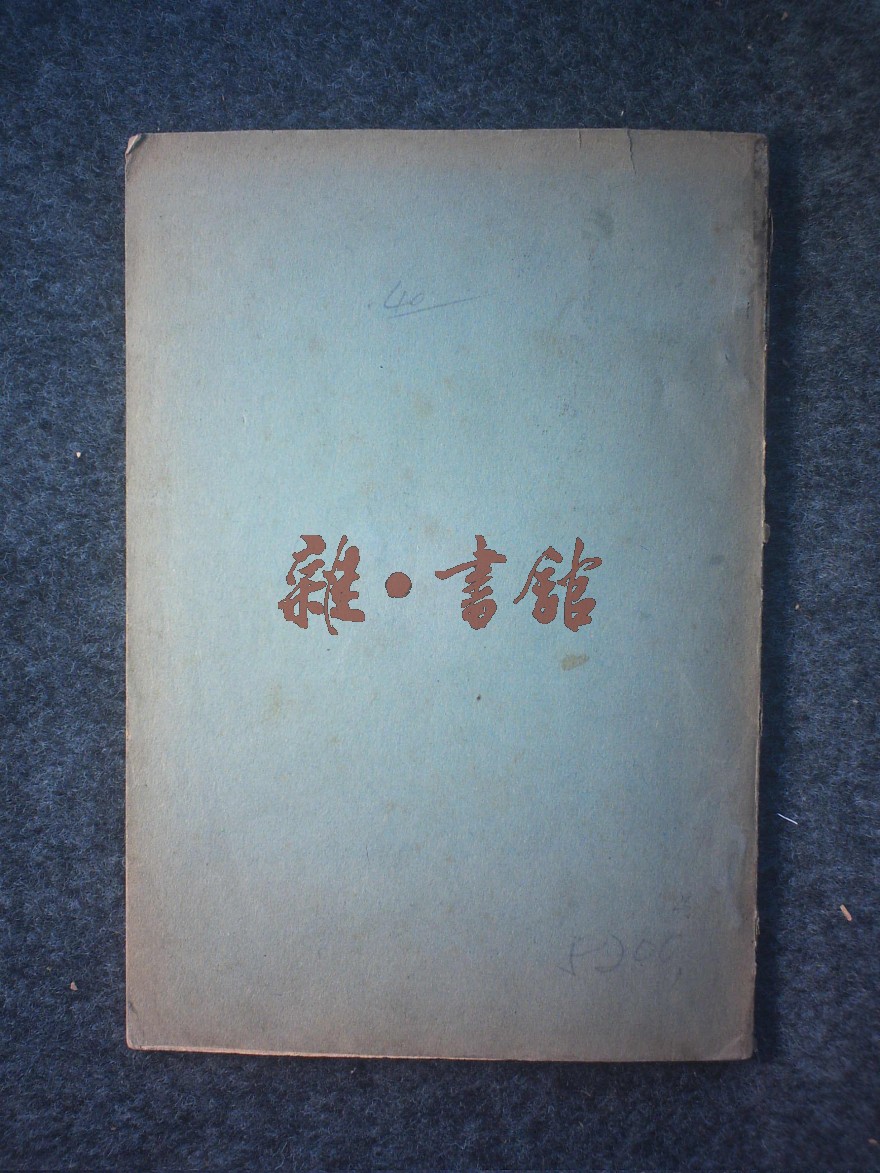 40
雜·書館